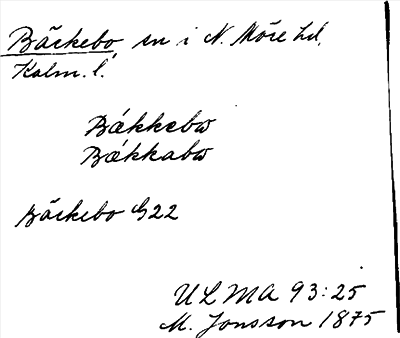 Bäckebo sn i N. Möre hd,
Kalm. l.
Bækkebω
Bækkabω
Bäckebo G22
ULMA 93:25
M. Jonsson 1875